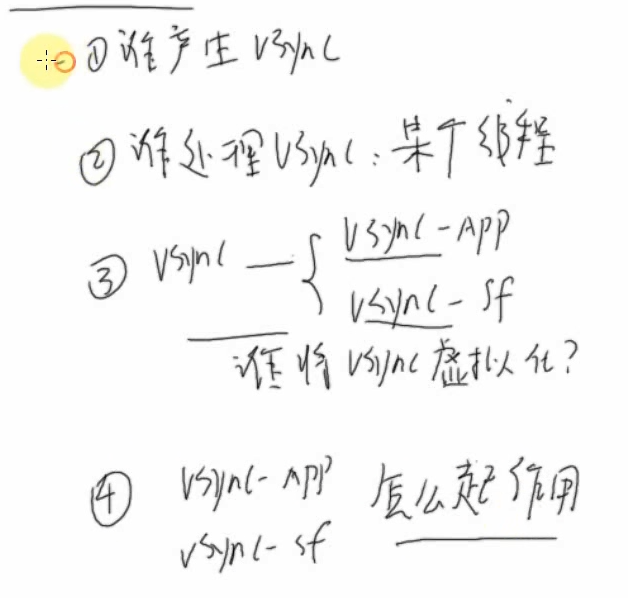 ① 谁产生 VSync
② 谁处理 VSync: 某个线程
③ VSync — { VSync-APP
VSync-Sf
谁将 VSync 虚拟化?
④ VSync-APP 怎么起作用
VSync-Sf